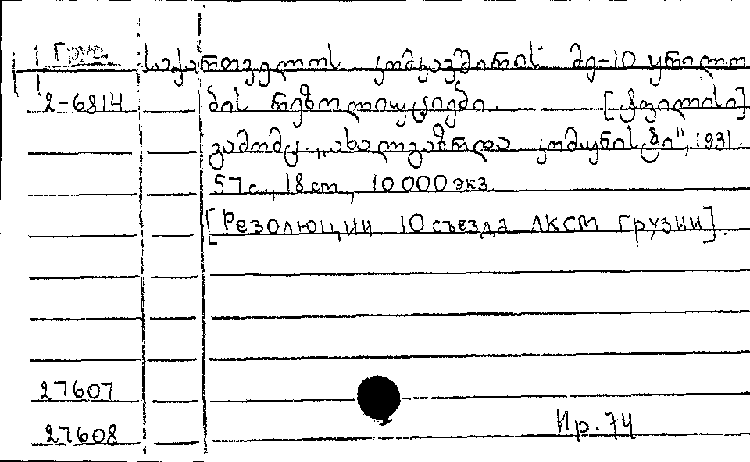 Груз.
საქართველოს კომკავშირის მე-10 ყრილო
2-6814 ბის რეზოლიუციები. [ტფილისი]
გამომც. „ახალგაზრდა კომუნისტი", 1931.
57 с., 18 cm, 10 000 экз.
[Резолюции 10 съезда ЛКСМ Грузии].
27607
27608
Ир. 74